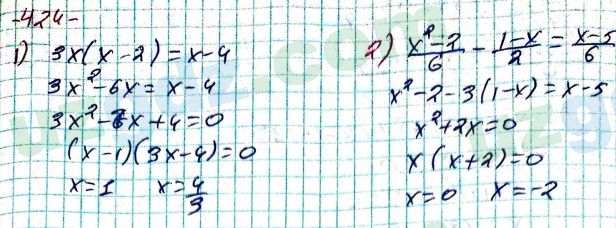 -424-
1) 3x(x-2)=x-4
3x²-6x=x-4
3x²-7x+4=0
(x-1)(3x-4)=0
x=1 x=4/3
2) x²-2/6 - 1-x/2 = x-5/6
x²-2-3(1-x)=x-5
x²+2x=0
x(x+2)=0
x=0 x=-2